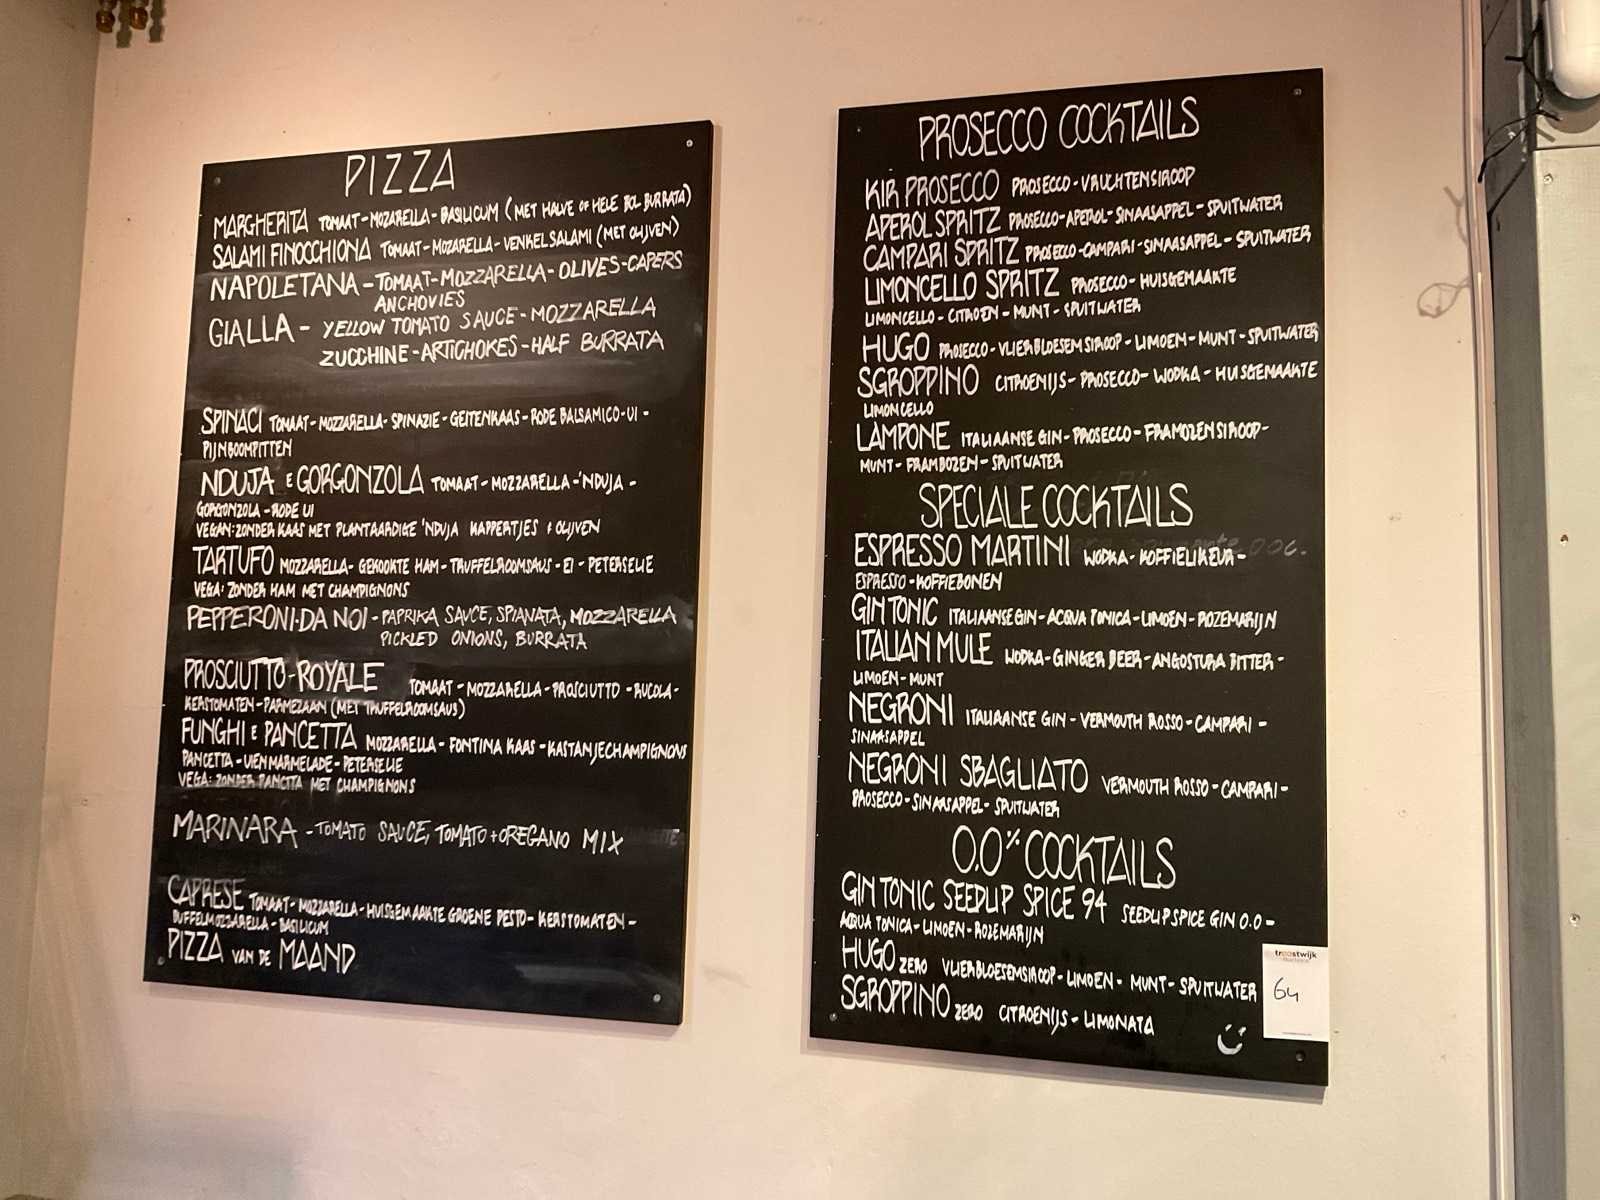 PIZZA
MARGHERITA TOMAAT-MOZARELLA-BASILICUM (MET HALVE OF HELE BOL BURRATA)
SALAMI FINOCCHIONA TOMAAT-MOZARELLA-VENKELSALAMI (MET OLIJVEN)
NAPOLETANA-TOMAAT-MOZZARELLA-OLIVES-CAPERS
ANCHOVIES
GIALLA - YELLOW TOMATO SAUCE-MOZZARELLA
ZUCCHINE-ARTICHOKES-HALF BURRATA
SPINACI TOMAAT-MOZZARELLA-SPINAZIE-GEITENKAAS-RODE BALSAMICO-UI-
PIJNBOOMPITTEN
NDUJA E GORGONZOLA TOMAAT-MOZZARELLA-'NDUJA-
GORGONZOLA-RODE UI
VEGAN: ZONDER KAAS MET PLANTAARDIGE 'NDUJA KAPPERTJES & OLIJVEN
TARTUFO MOZZARELLA-GEKOOKTE HAM-TRUFFELROOMSAUS-EI-PETERSELIE
VEGA: ZONDER HAM MET CHAMPIGNONS
PEPPERONI·DA NOI-PAPRIKA SAUCE, SPIANATA, MOZZARELLA
PICKLED ONIONS, BURRATA
PROSCIUTTO-ROYALE TOMAAT-MOZZARELLA-PROSCIUTTO-RUCOLA-
KERSTOMATEN-PARMEZAAN (MET TRUFFELROOMSAUS)
FUNGHI E PANCETTA MOZZARELLA-FONTINA KAAS-KASTANJECHAMPIGNONS
PANCETTA-UIENMARMELADE-PETERSELIE
VEGA: ZONDER PANCTTA MET CHAMPIGNONS
MARINARA -TOMATO SAUCE, TOMATO+OREGANO MIX
CAPRESE TOMAAT-MOZZARELLA-HUISGEMAAKTE GROENE PESTO-KERSTOMATEN-
BUFFELMOZZARELLA-BASILICUM
PIZZA VAN DE MAAND
PROSECCO COCKTAILS
KIR PROSECCO PROSECCO-VRUCHTENSIROOP
APEROL SPRITZ PROSECCO-APEROL-SINAASAPPEL-SPUITWATER
CAMPARI SPRITZ PROSECCO-CAMPARI-SINAASAPPEL-SPUITWATER
LIMONCELLO SPRITZ PROSECCO-HUISGEMAAKTE
LIMONCELLO-CITROEN-MUNT-SPUITWATER
HUGO PROSECCO-VLIERBLOESEMSIROOP-LIMOEN-MUNT-SPUITWATER
SGROPPINO CITROENIJS-PROSECCO-WODKA-HUISGEMAAKTE
LIMONCELLO
LAMPONE ITALIAANSE GIN-PROSECCO-FRAMOZENSIROOP-
MUNT-FRAMBOZEN-SPUITWATER
SPECIALE COCKTAILS
ESPRESSO MARTINI WODKA-KOFFIELIKEUR-
ESPRESSO-KOFFIEBONEN
GIN TONIC ITALIAANSE GIN-ACQUA TONICA-LIMOEN-ROZEMARIJN
ITALIAN MULE WODKA-GINGER BEER-ANGOSTURA BITTER-
LIMOEN-MUNT
NEGRONI ITALIAANSE GIN-VERMOUTH ROSSO-CAMPARI-
SINAASAPPEL
NEGRONI SBAGLIATO VERMOUTH ROSSO-CAMPARI-
PROSECCO-SINAASAPPEL-SPUITWATER
0.0% COCKTAILS
GIN TONIC SEEDLIP SPICE 94 SEEDLIP SPICE GIN 0.0-
ACQUA TONICA-LIMOEN-ROZEMARIJN
HUGO ZERO VLIERBLOESEMSIROOP-LIMOEN-MUNT-SPUITWATER
SGROPPINO ZERO CITROENIJS-LIMONATA
troostwijk
64